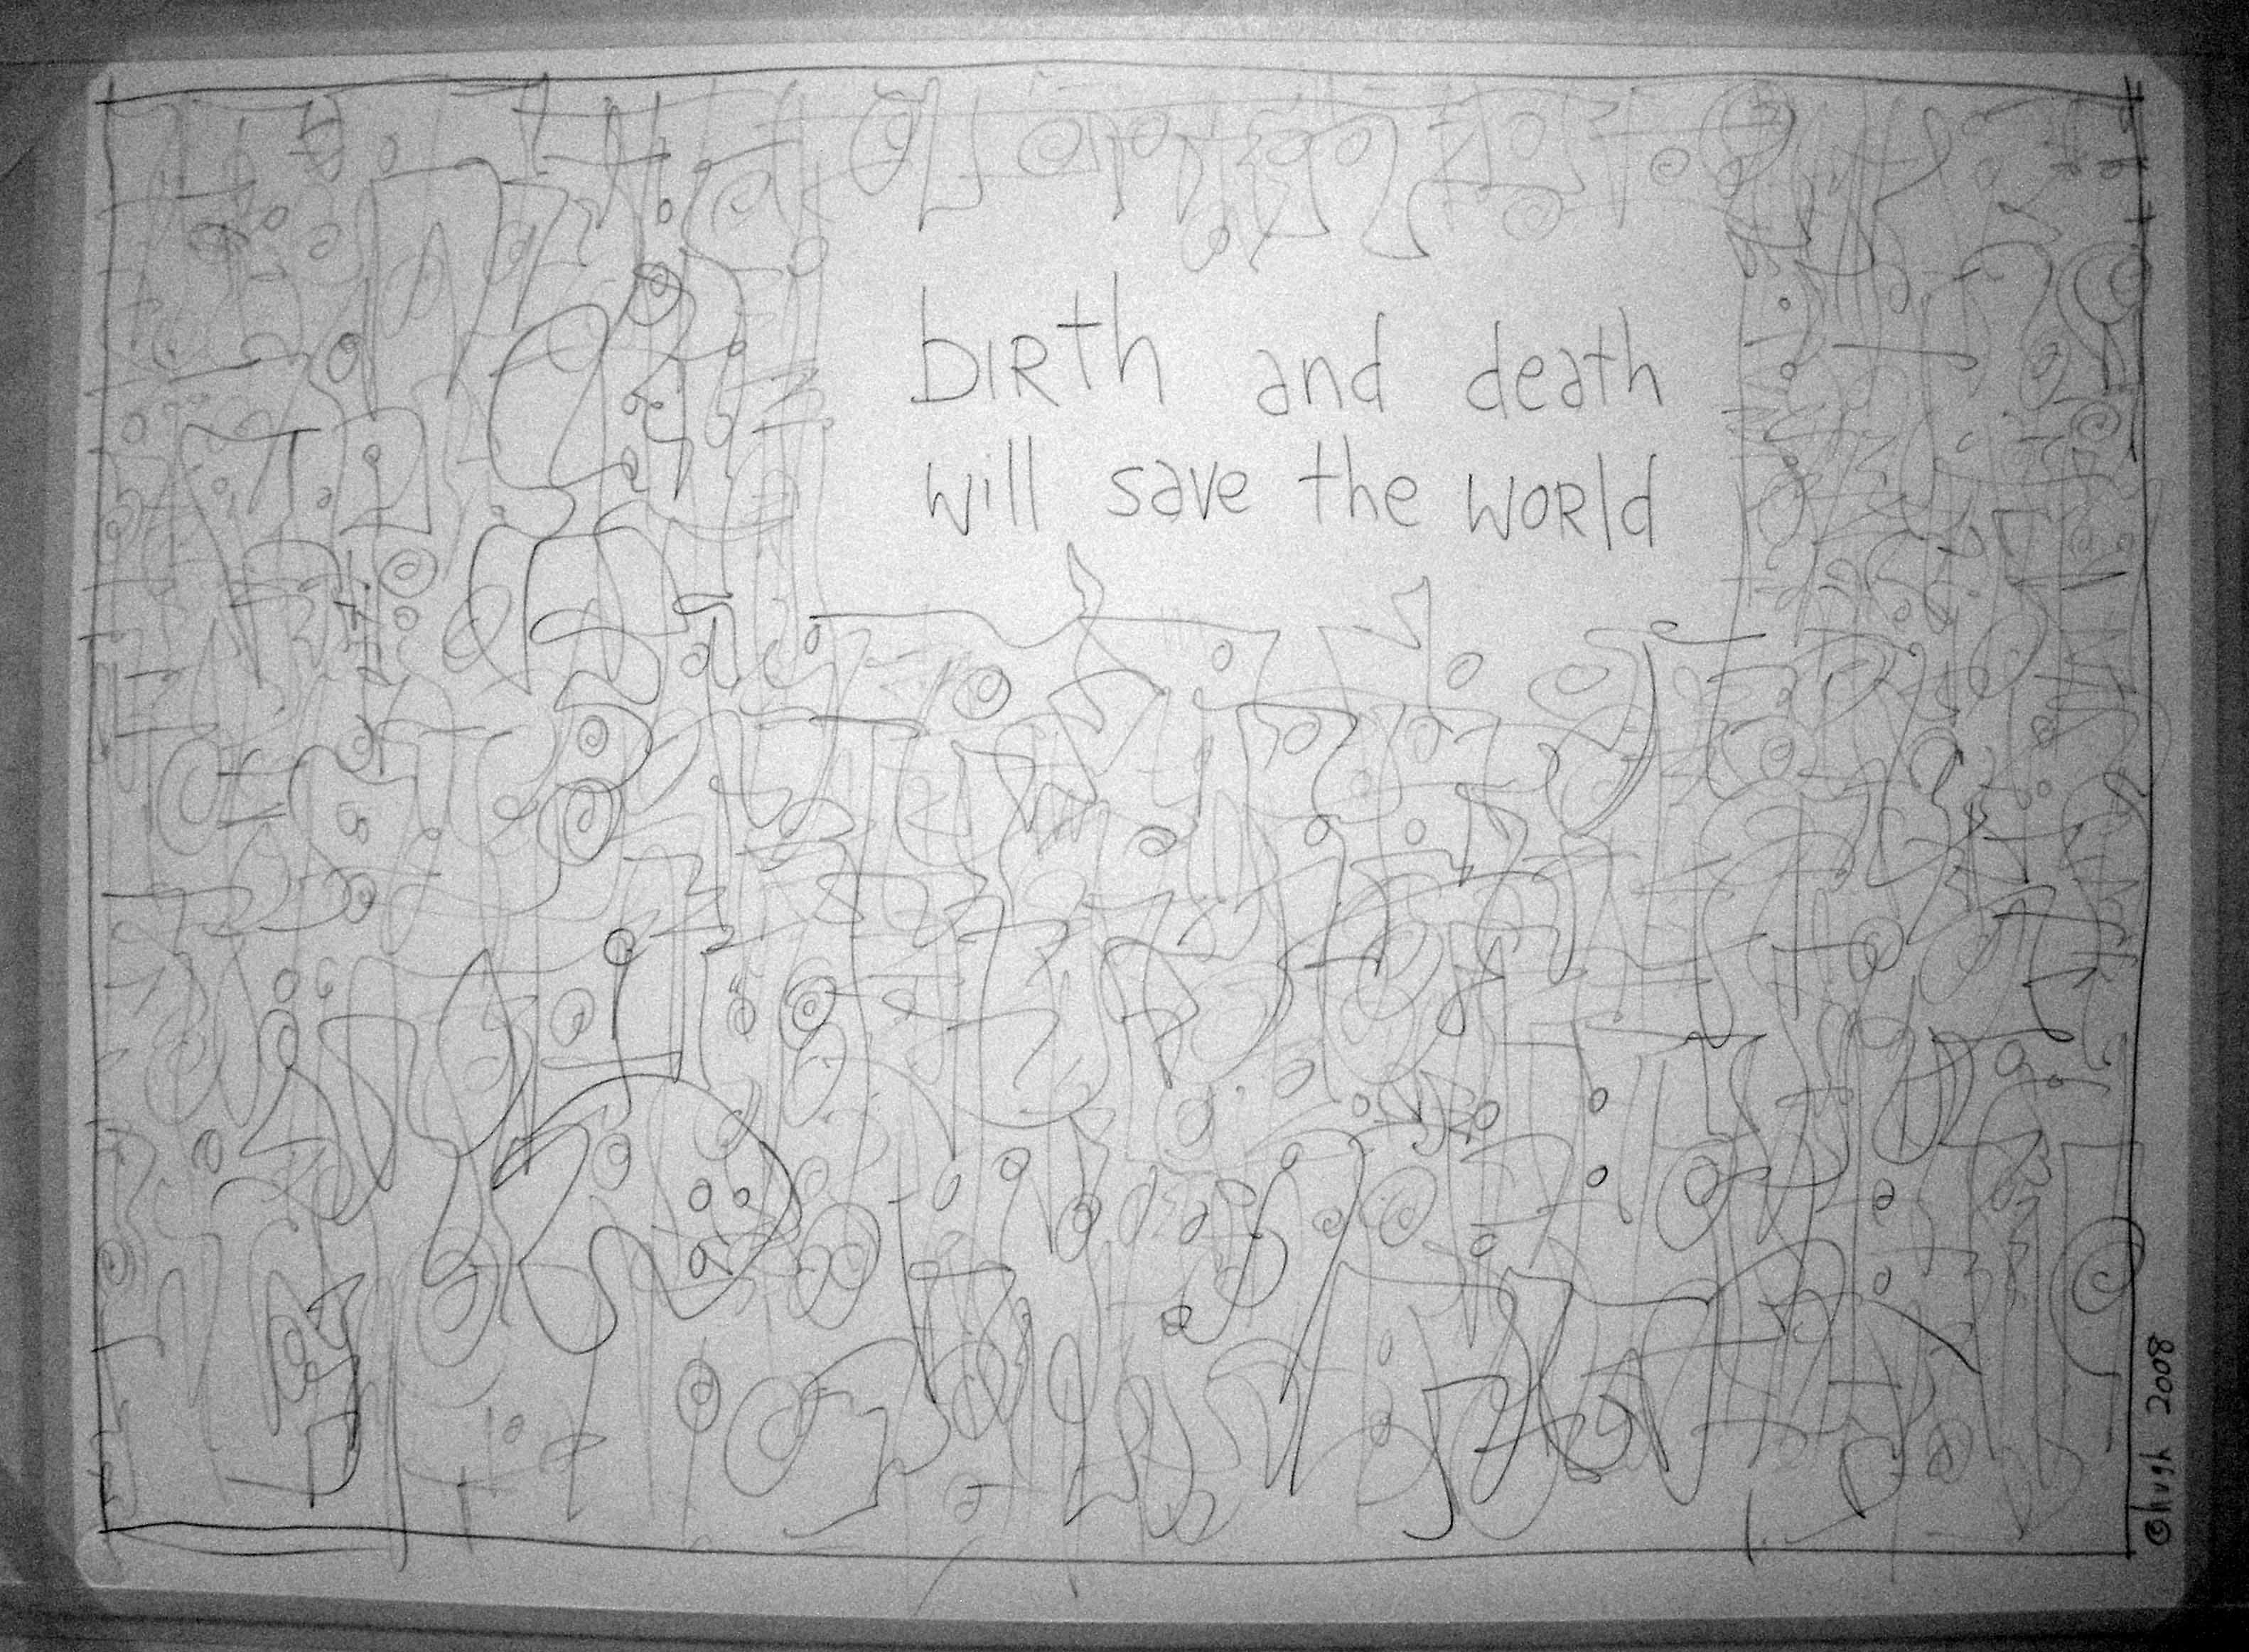 birth and death
will save the world
©hugh 2008